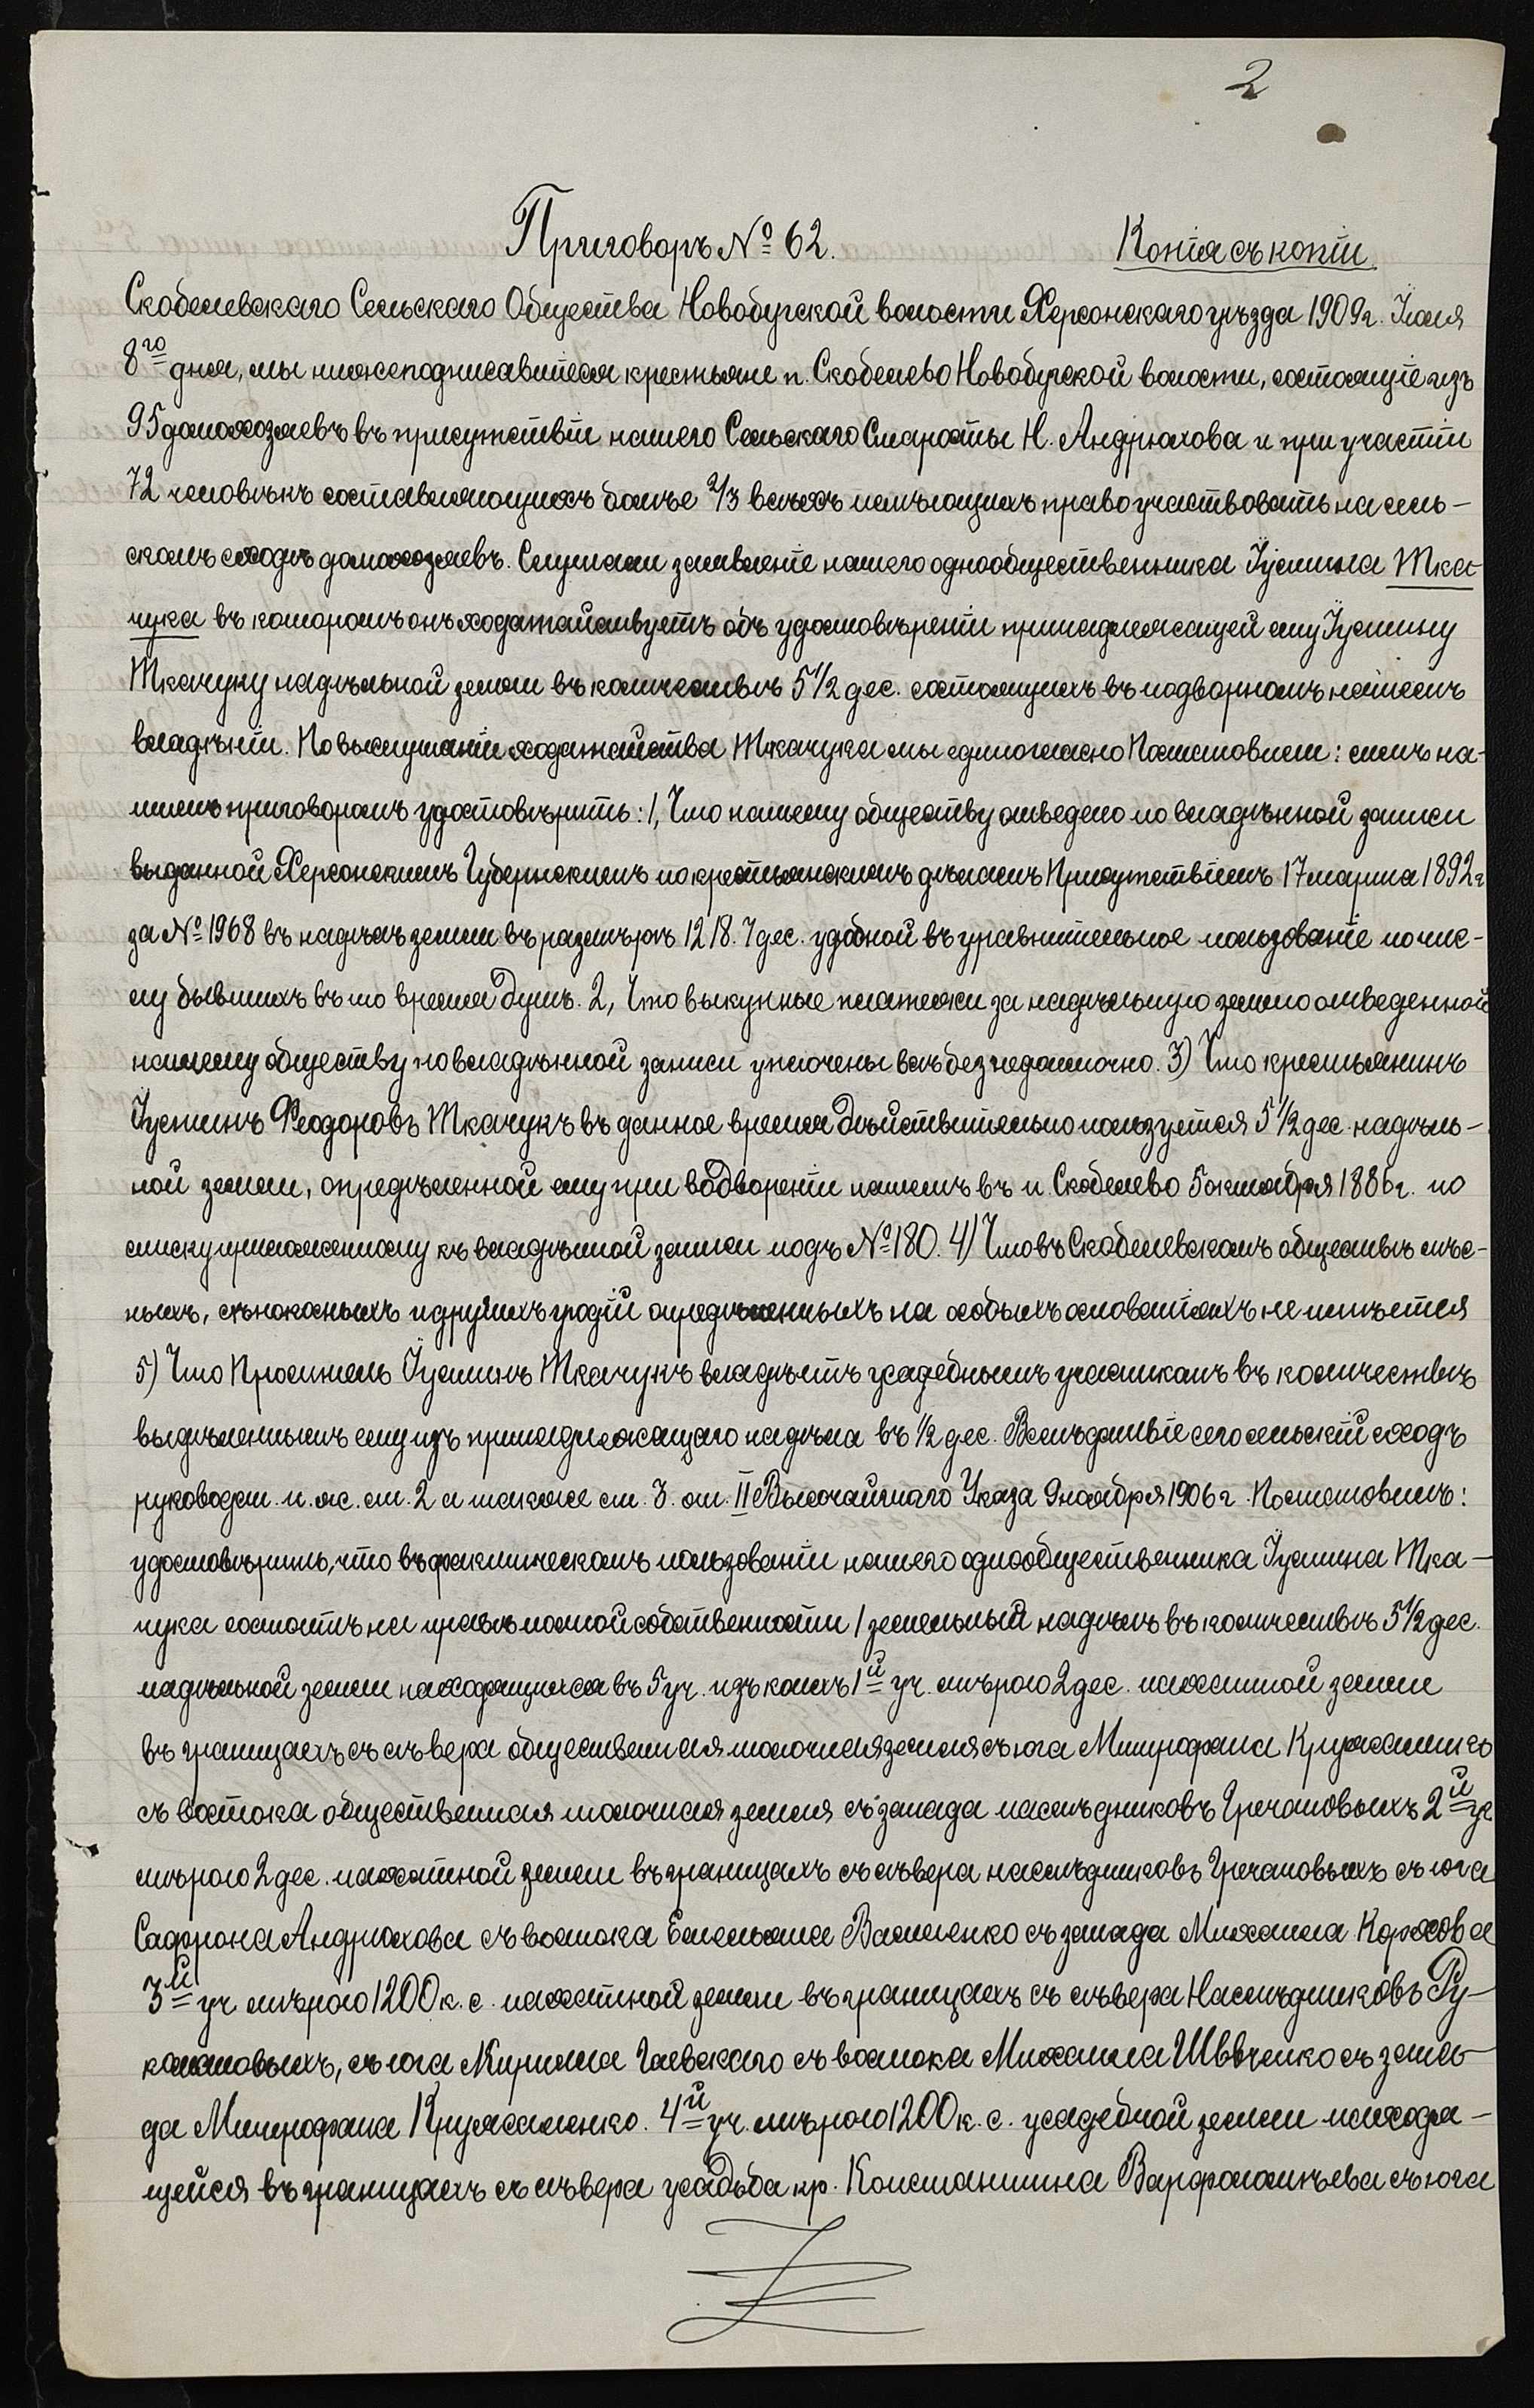 2
Приговоръ № 62.
Копія съ копіи
Скобелевскаго Сельскаго Общества Новобугской волости Херсонскаго уѣзда 1909 г. Іюля
8го дня, мы нижеподписавшіеся крестьяне п. Скобелево Новобугской волости, состоящіе изъ
95 домохозяевъ въ присутствіи нашего Сельскаго Старосты Н. Андрюхова и при участіи
72 человѣкъ составляющихъ болѣе 2/3 всѣхъ имѣющихъ право участвовать на сель-
скомъ сходѣ домохозяевъ. Слушали заявленіе нашего однообщественника Іустина Тка-
чука въ которомъ онъ ходатайствуетъ объ удостовѣреніи принадлежащей ему Іустину
Ткачуку надѣльной земли въ количествѣ 5 1/2 дес. состоящихъ въ подворномъ нашемъ
владѣніи. По выслушаніи ходатайства Ткачука мы единогласно Постановили: симъ на-
шимъ приговоромъ удостовѣрить: 1, Что нашему обществу отведено по владѣнной записи
выданной Херсонскимъ Губернскимъ по крестьянскимъ дѣламъ Присутствіемъ 17 марта 1892 г
за № 1968 въ надѣлъ земли въ размѣрѣ 1218.7 дес. удобной въ уравнительное пользованіе по чис-
лу бывшихъ въ то время душъ. 2, Что выкупные платежи за надѣльную землю отведенной
нашему обществу по владѣнной записи уплочены всѣ безнедоимочно. 3) Что крестьянинъ
Іустинъ Феодоровъ Ткачукъ въ данное время дѣйствительно пользуется 5 1/2 дес. надѣль-
ной земли, опредѣленной ему при водвореніи нашемъ въ п. Скобелево 5 октября 1886 г. по
списку приложенному къ владѣнной записи подъ № 180. 4) Что въ Скобелевскомъ обществѣ лѣс-
ныхъ, сѣнокосныхъ и другихъ угодій опредѣленныхъ на особыхъ основаніяхъ не имѣется
5) Что Проситель Іустинъ Ткачукъ владѣетъ усадебнымъ участкомъ въ количествѣ
выдѣленнымъ ему изъ принадлежащаго надѣла въ 1/2 дес. Вслѣдствіе сего сельскій сходъ
руководям. п. ж. ст. 2 а также ст. 3. от. II Высочайшаго Указа 9 ноября 1906 г. Постановилъ:
удостовѣрить, что въ фактическомъ пользованіи нашего однообщественника Іустина Тка-
чука состоитъ на правѣ полной собственности 1 земельный надѣлъ въ количествѣ 5 1/2 дес.
надѣльной земли находящихся въ 5 уч. изъ коихъ 1й уч. мѣрою 2 дес. пахатной земли
въ границахъ съ сѣвера общественная толочная земля съ юга Митрофана Кружаленко
съ востока общественная толочная земля съ запада наслѣдниковъ Гречановыхъ 2й уч
мѣрою 2 дес. пахатной земли въ границахъ съ сѣвера наслѣдниковъ Гречановыхъ съ юга
Сафрона Андрюхова съ востока Емельяна Ващенко съ запада Михаила Коржова
3й уч мѣрою 1200 к. с. пахатной земли въ границахъ съ сѣвера Наслѣдниковъ Ру-
кавовыхъ, съ юга Кирила Гаевскаго съ востока Михаила Шевченко съ запа-
да Митрофана Кружаленко. 4й уч. мѣрою 1200 к. с. усадебной земли находя-
щейся въ границахъ съ сѣвера усадьба кр. Константина Варфоломѣева съ юга